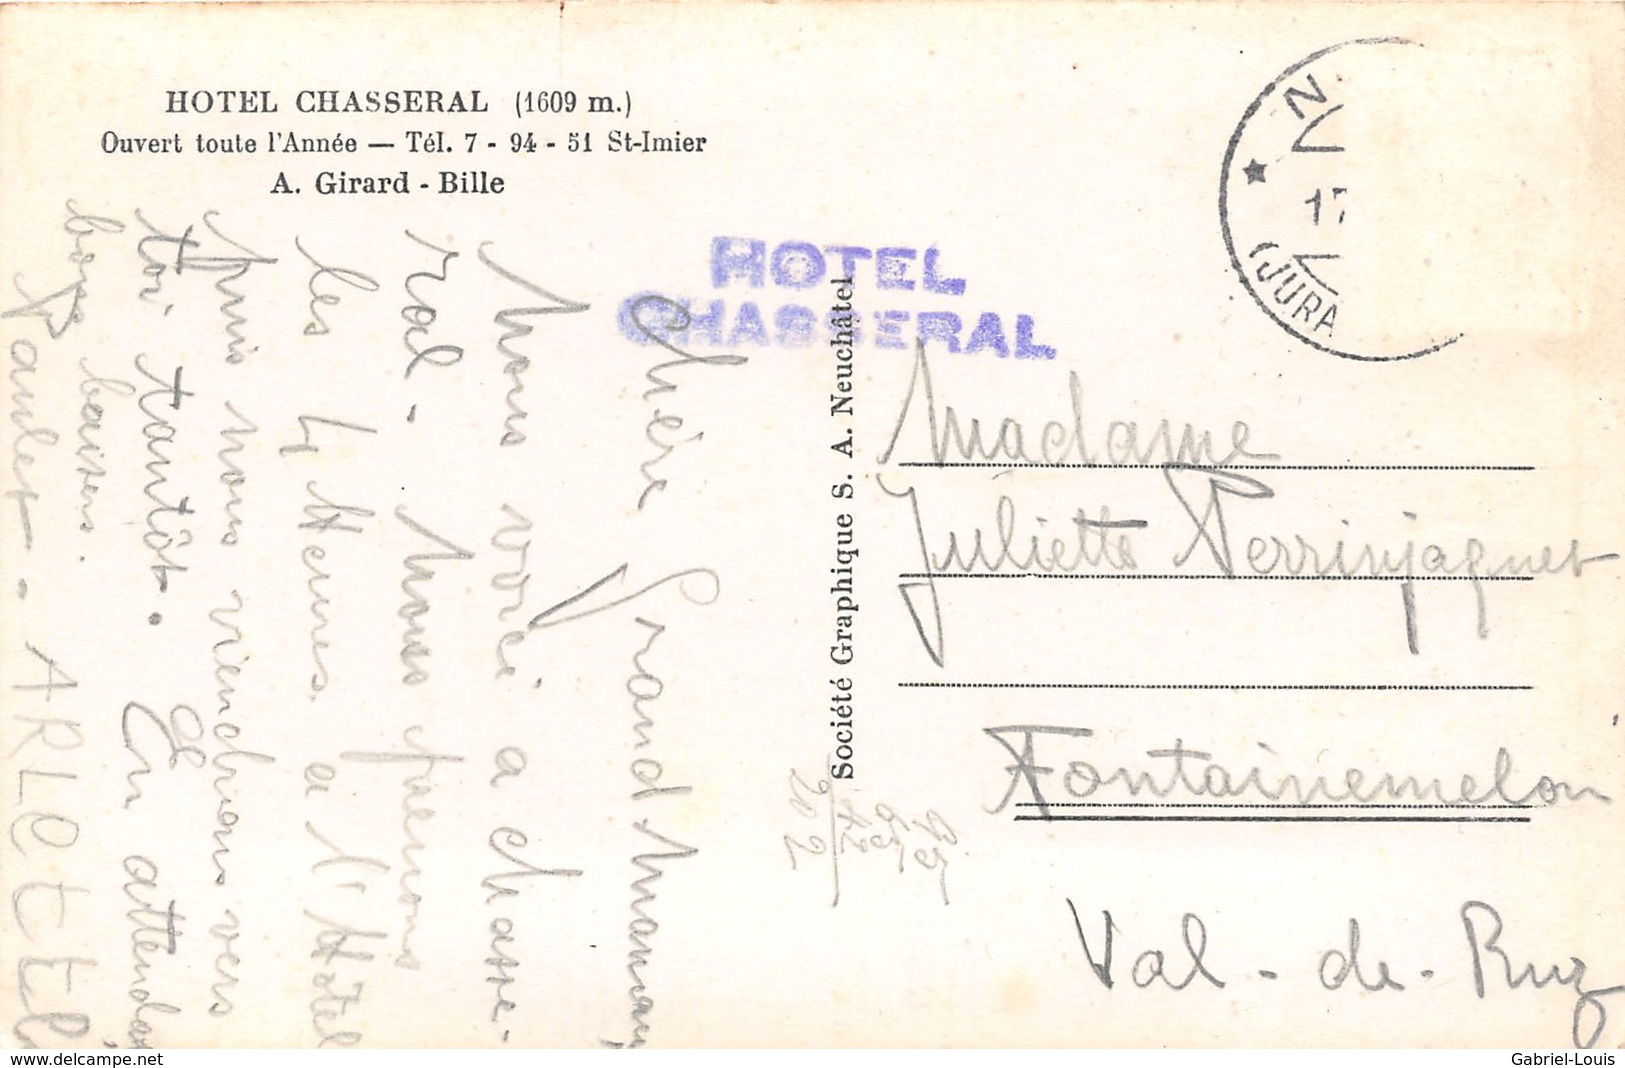 HOTEL CHASSERAL (1609 m.)
Ouvert toute l'Année — Tél. 7 - 94 - 51 St-Imier
A. Girard - Bille
HOTEL
CHASSERAL
N
17
(JURA
Société Graphique S. A. Neuchâtel
Chère Grand Maman,
Nous voici a chasse-
ral - Nous prenons
les 4 Heures a l'Hôtel
puis nous viendrons vers
toi tantôt. En attendant,
bons baisers.
Paulet - ARLETTE
Madame
Juliette Perrinjaquet
Fontainemelon
Val-de-Ruz
202
www.delcampe.net
Gabriel-Louis